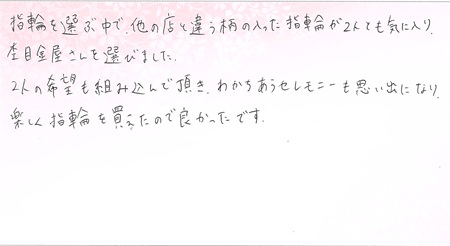 指輪を選ぶ中で、他の店と違う柄の入った指輪が2人とも気に入り、
杢目金屋さんを選びました。
2人の希望も組み込んで頂き、わかちあうセレモニーも思い出になり、
楽しく指輪を買えたので良かったです。